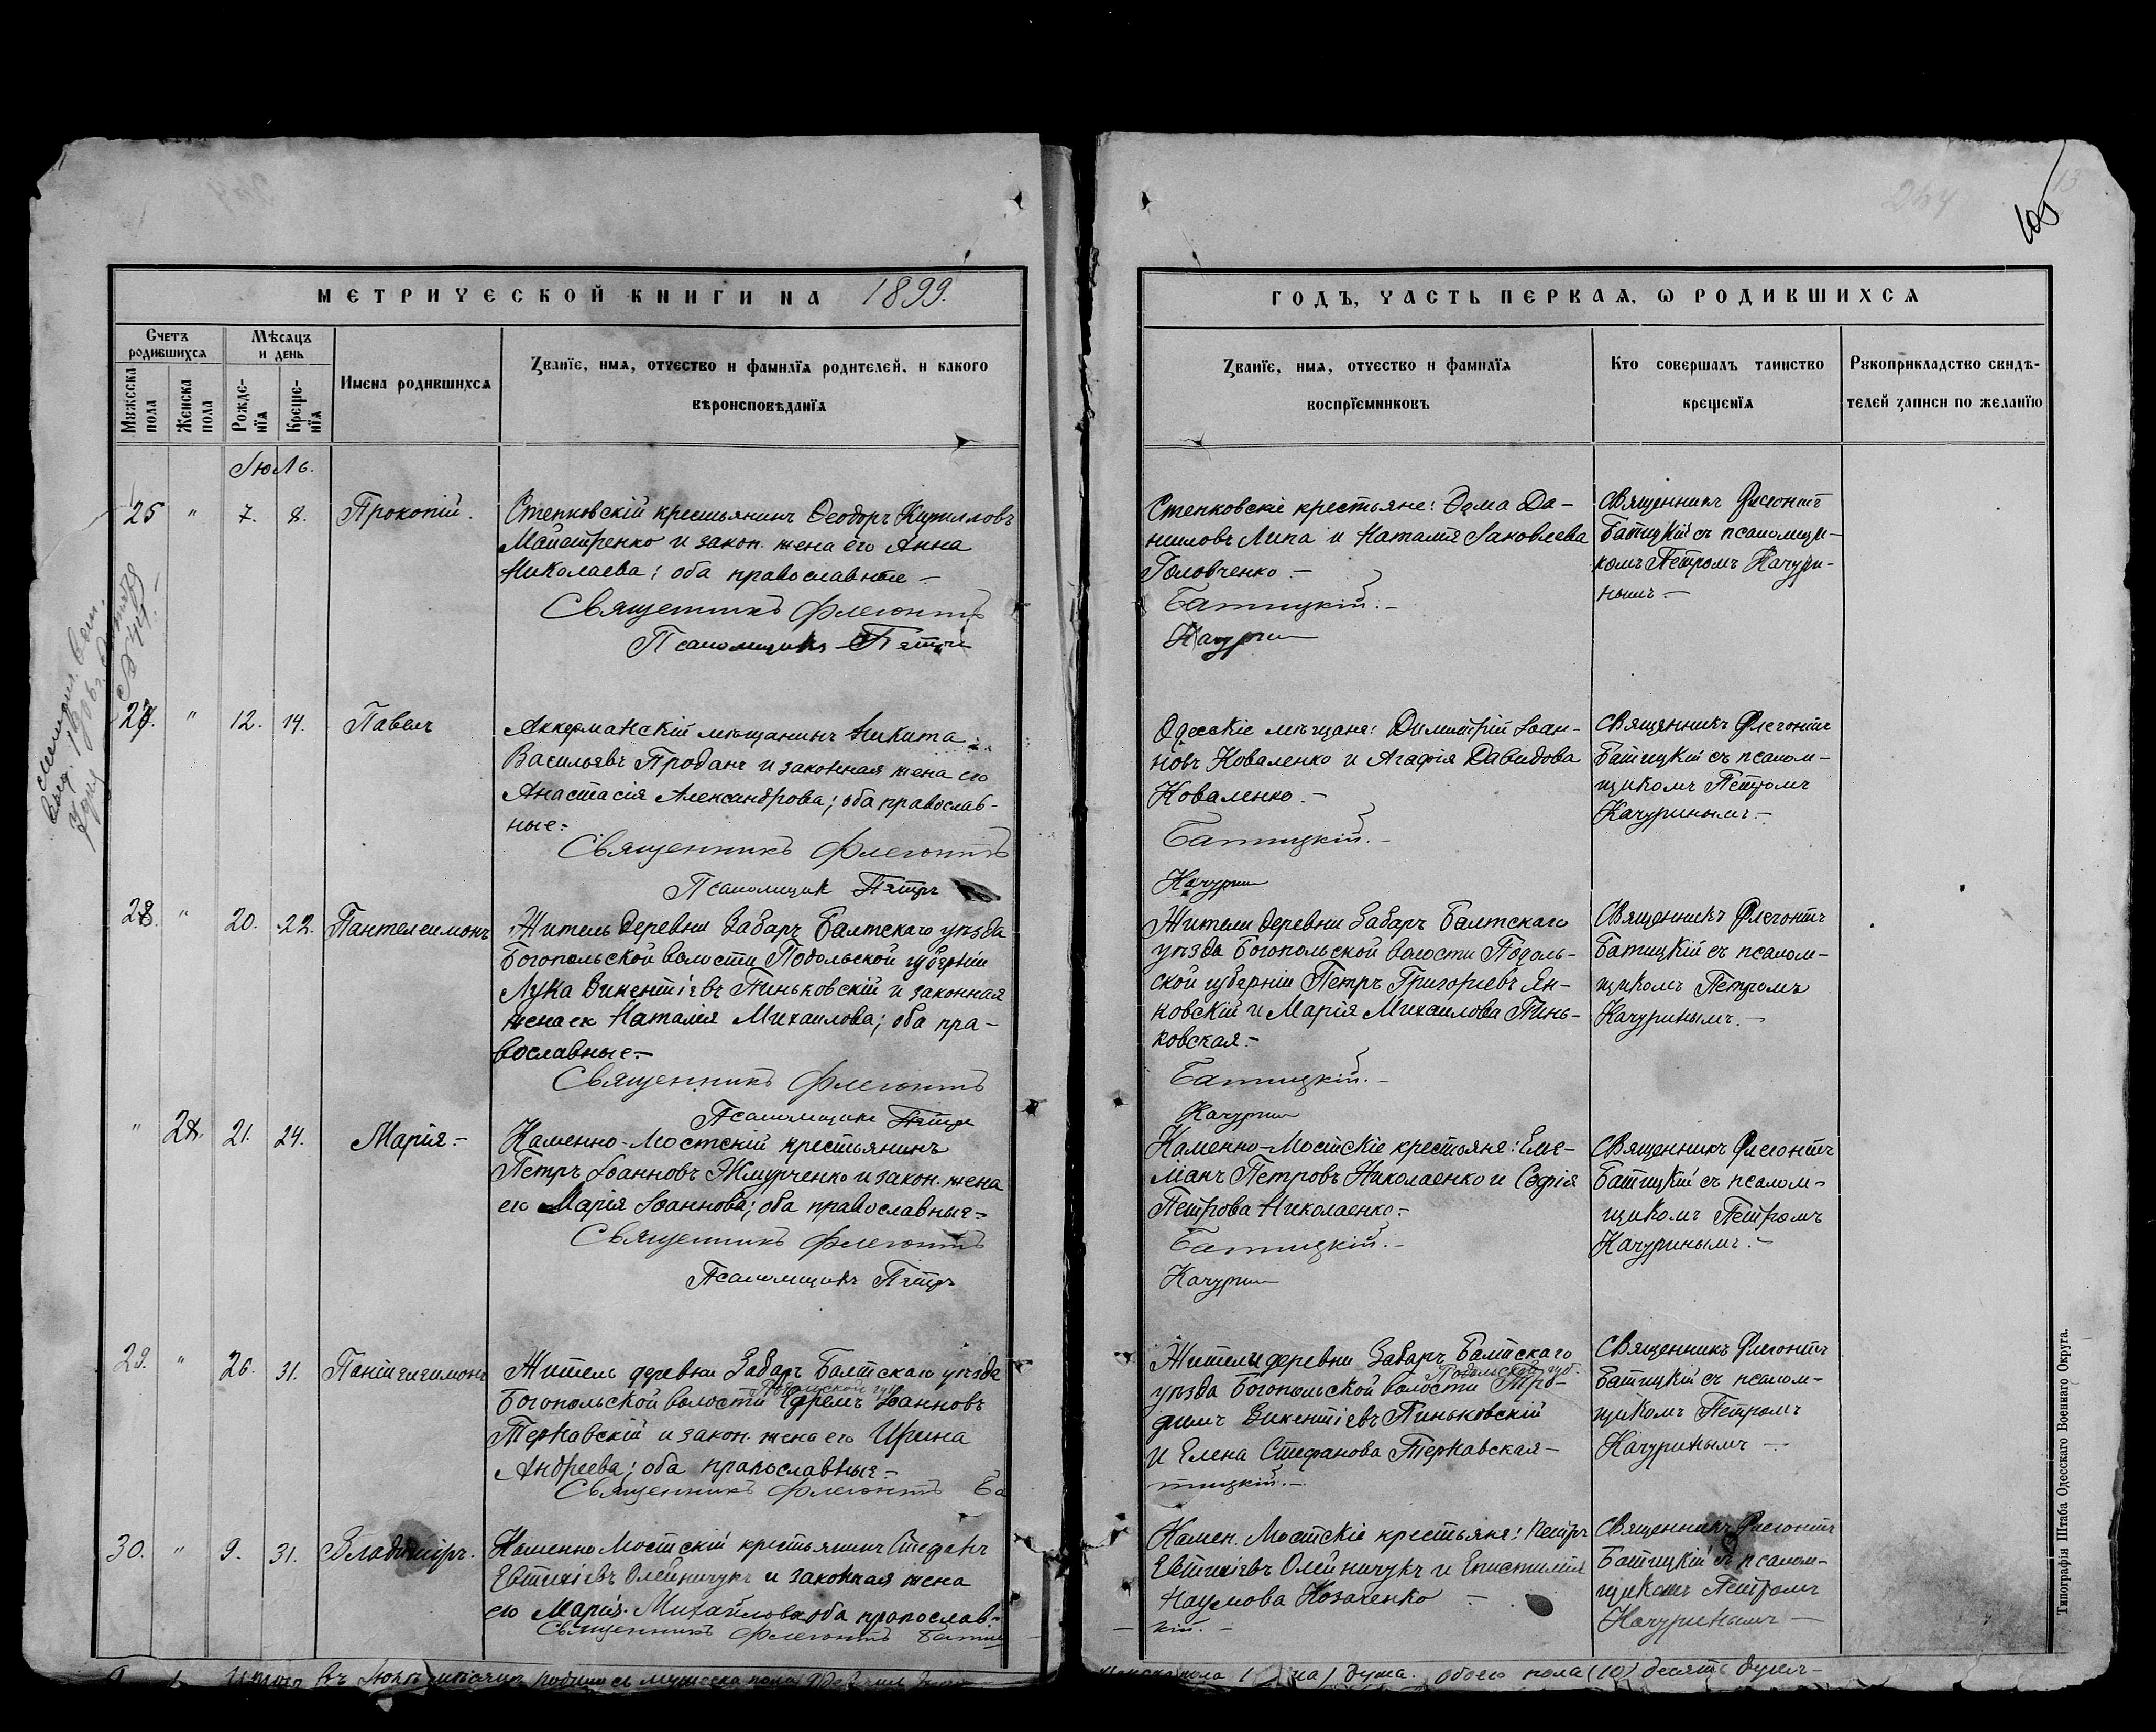 МЕТРИЧЕСКОЙ КНИГИ НА 1899.
Счетъ родившихся
Мѣсяцъ и день
Мужеска пола
Женска пола
Рожденія
Крещенія
Имена родившихся
Званїе, имя, отчество и фамилїя родителей, и какого
вѣроисповѣданїя
Іюль.
25 " 7. 8. Прокопій.
Степковскій крестьянинъ Ѳеодоръ Кирилловъ
Майстренко и закон. жена его Анна
Николаева; оба православные –
Священникъ Флегонтъ
Псаломщикъ Петръ
27. " 12. 14. Павелъ
Аккерманскій мѣщанинъ Никита
Васильевъ Проданъ и законная жена его
Анастасія Александрова; оба православ-
ные.-
Священникъ Флегонтъ
Псаломщик Петръ
28. " 20. 22. Пантелеимонъ
Житель деревни Забаръ Балтскаго уѣзда
Богопольской волости Подольской губерніи
Лука Викентіевъ Пиньковскій и законная
жена ек Наталія Михаилова; оба пра-
вославные.-
Священникъ Флегонтъ
Псаломщикъ Петръ
" 21. 24. Марія.-
Каменно-Мостскій крестьянинъ
Петръ Іоанновъ Жмурченко и закон. жена
его Марія Іоаннова; оба православные.-
Священникъ Флегонтъ
Псаломщикъ Петръ
29. " 26. 31. Пантелеимонъ
Житель деревни Забаръ Балтскаго уѣзда
Подольской губ.
Богопольской волости Ефремъ Іоанновъ
Тернавскій и закон. жена его Ирина
Андреева; оба православные.-
Священникъ Флегонтъ Ба
30. " 9. 31. Владиміръ.
Каменно Мостскій крестьянинъ Стефанъ
Евтихіевъ Олейничукъ и законная жена
его Марія Михайлова оба православ-
Священникъ Флегонтъ Батиц
въ Іюлѣ мѣсяцѣ родилось мужеска пола
105
ГОДЪ, ЧАСТЬ ПЕРВАЯ, Ѡ РОДИВШИХСЯ
Званїе, имя, отчество и фамилїя
воспрїемниковъ
Кто совершалъ таинство
крещенїя
Рукоприкладство свидѣ-
телей записи по желанїю
Степковскіе крестьяне: Дема Да-
ниловъ Липа и Наталія Іаковлева
Головченко.-
Батицкій.-
Качурин
Священникъ Флегонтъ
Батицкій съ псаломщи-
комъ Петромъ Качури-
нымъ.-
Одесскіе мѣщане: Димитрій Іоан-
новъ Коваленко и Агафія Давидова
Коваленко.-
Батицкій.-
Качурин
Священникъ Флегонтъ
Батицкій съ псалом-
щикомъ Петромъ
Качуринымъ.-
Жители деревни Забаръ Балтскаго
уѣзда Богопольской волости Подоль-
ской губерніи Петръ Григорьевъ Ян-
ковскій и Марія Михаилова Пинь-
ковская.-
Батицкій.-
Качурин
Священникъ Флегонтъ
Батицкій съ псалом-
щикомъ Петромъ
Качуринымъ.-
Каменно-Мостскіе крестьяне: Еме-
ліанъ Петровъ Николаенко и Софія
Петрова Николаенко.-
Батицкій.-
Качурин
Священникъ Флегонтъ
Батицкій съ псалом-
щикомъ Петромъ
Качуринымъ.-
Жители деревни Забаръ Балтскаго
Подольской губ.
уѣзда Богопольской волости Тро-
фимъ Викентіевъ Пиньковскій
и Елена Стефанова Тернавская-
тицкій.-
Священникъ Флегонтъ
Батицкій съ псалом-
щикомъ Петромъ
Качуринымъ -
Камен. Мостскіе крестьяне: Петръ
Евтихіевъ Олейничукъ и Епистимія
Наумова Козаченко -
кій.-
Священникъ Флегонтъ
Батицкій съ псалом-
щикомъ Петромъ
Качуринымъ -
пола 1 душа. обоего пола (10) десять душъ-
Типографія Штаба Одесскаго Военнаго Округа.